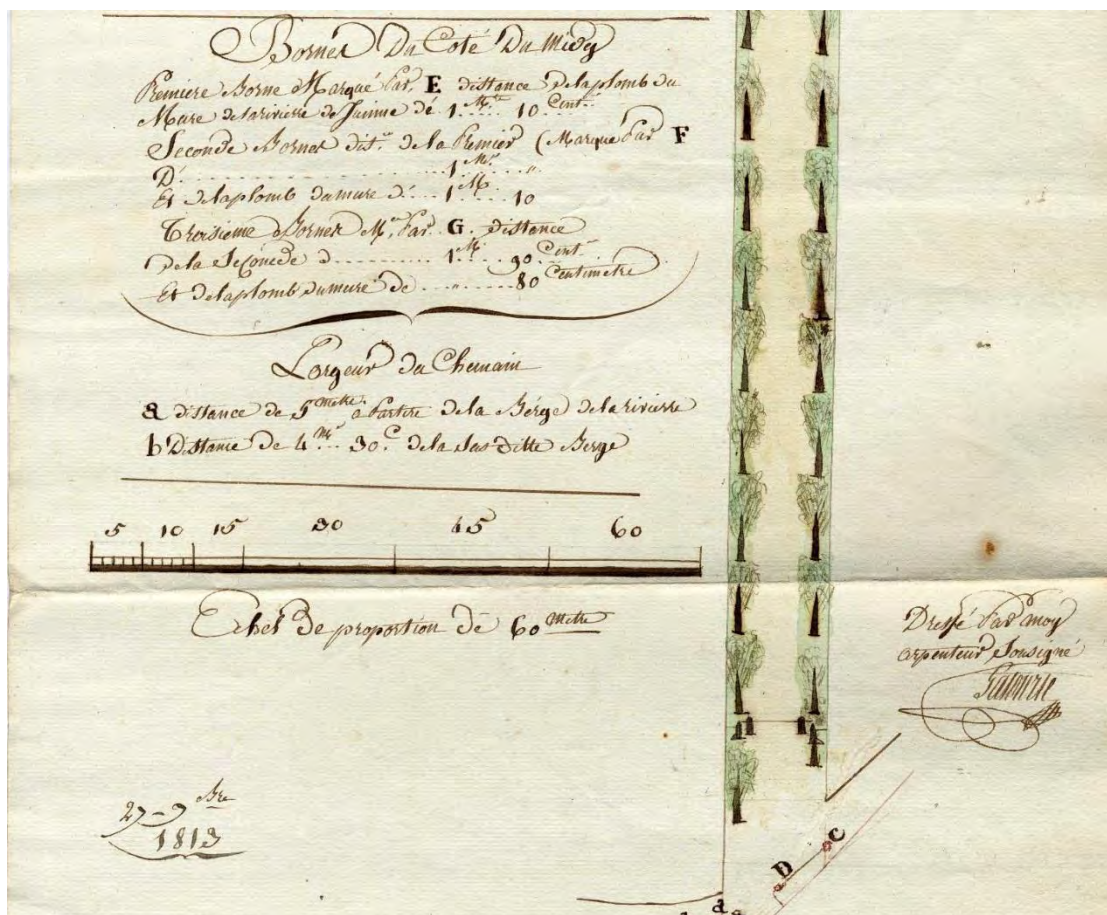 Bornes Du Coté Du Midy
Premiere Borne Marqué Par. E distance de laplomb du
Mure de la rivierre de Juinne dé 1 M.re 10 Cent.
Seconde Bornes dist. de la Premier (Marqué Par F
D'. 1 M. "
Et delaplomb dumure d. 1 M. 10
Troisieme Bornes M. Par. G. distance
de la Seconde d 1 M. 90 Cent.
Et delaplomb dumure de " 80 Centimetre
Largeur du Chemain
a distance de 5 metre a Partire de la Berge de la rivierre
b Distance de 4 M. 30 c. de la Sus ditte Berge
5 10 15 30 45 60
Echel de proportion de 60 Metre
Dressé Par moy
arpenteur Sousigné
27 - 9 Bre
1813
C
D
a